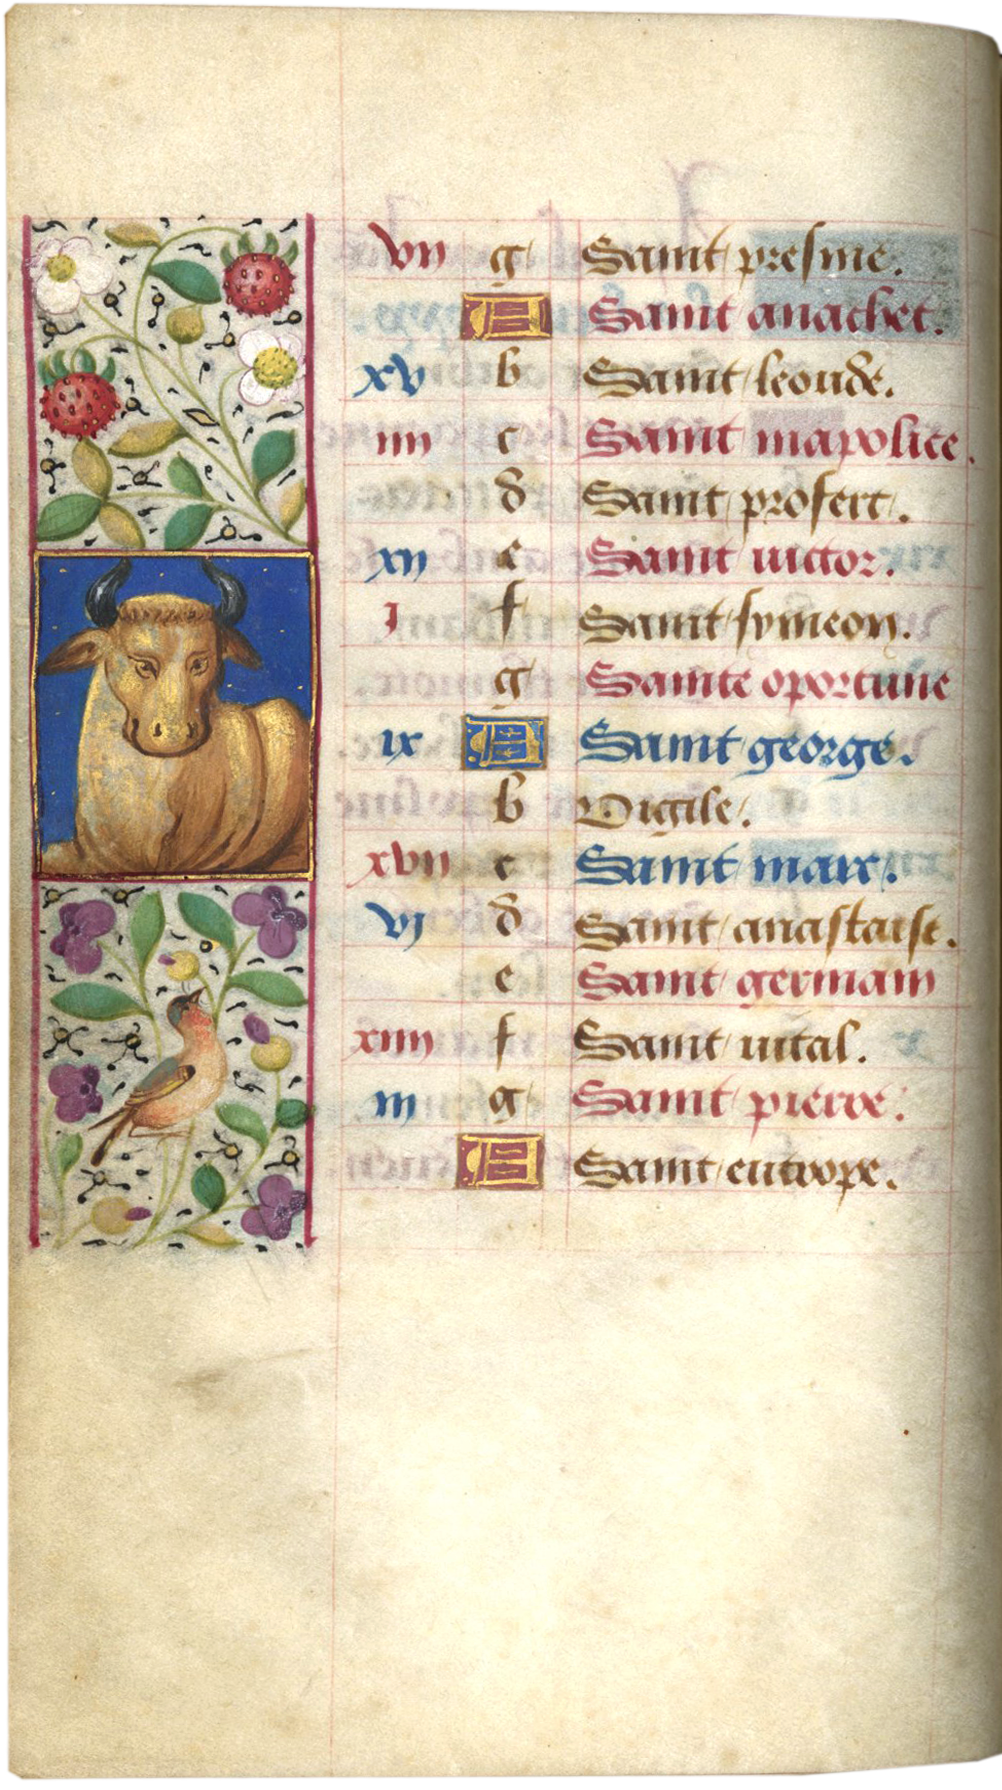 vii g Saint presme.
A Saint anachet.
xv b Saint leonde.
iiii c Saint mapolice.
d Saint profert.
xii e Saint uictor.
i f Saint symeon.
g Sainte oportune
ix A Saint george.
b Vigile.
xvii c Saint marc.
vi d Saint anastaise.
e Saint germain
xiiii f Saint uital.
iii g Saint pierre.
A Saint eutrope.